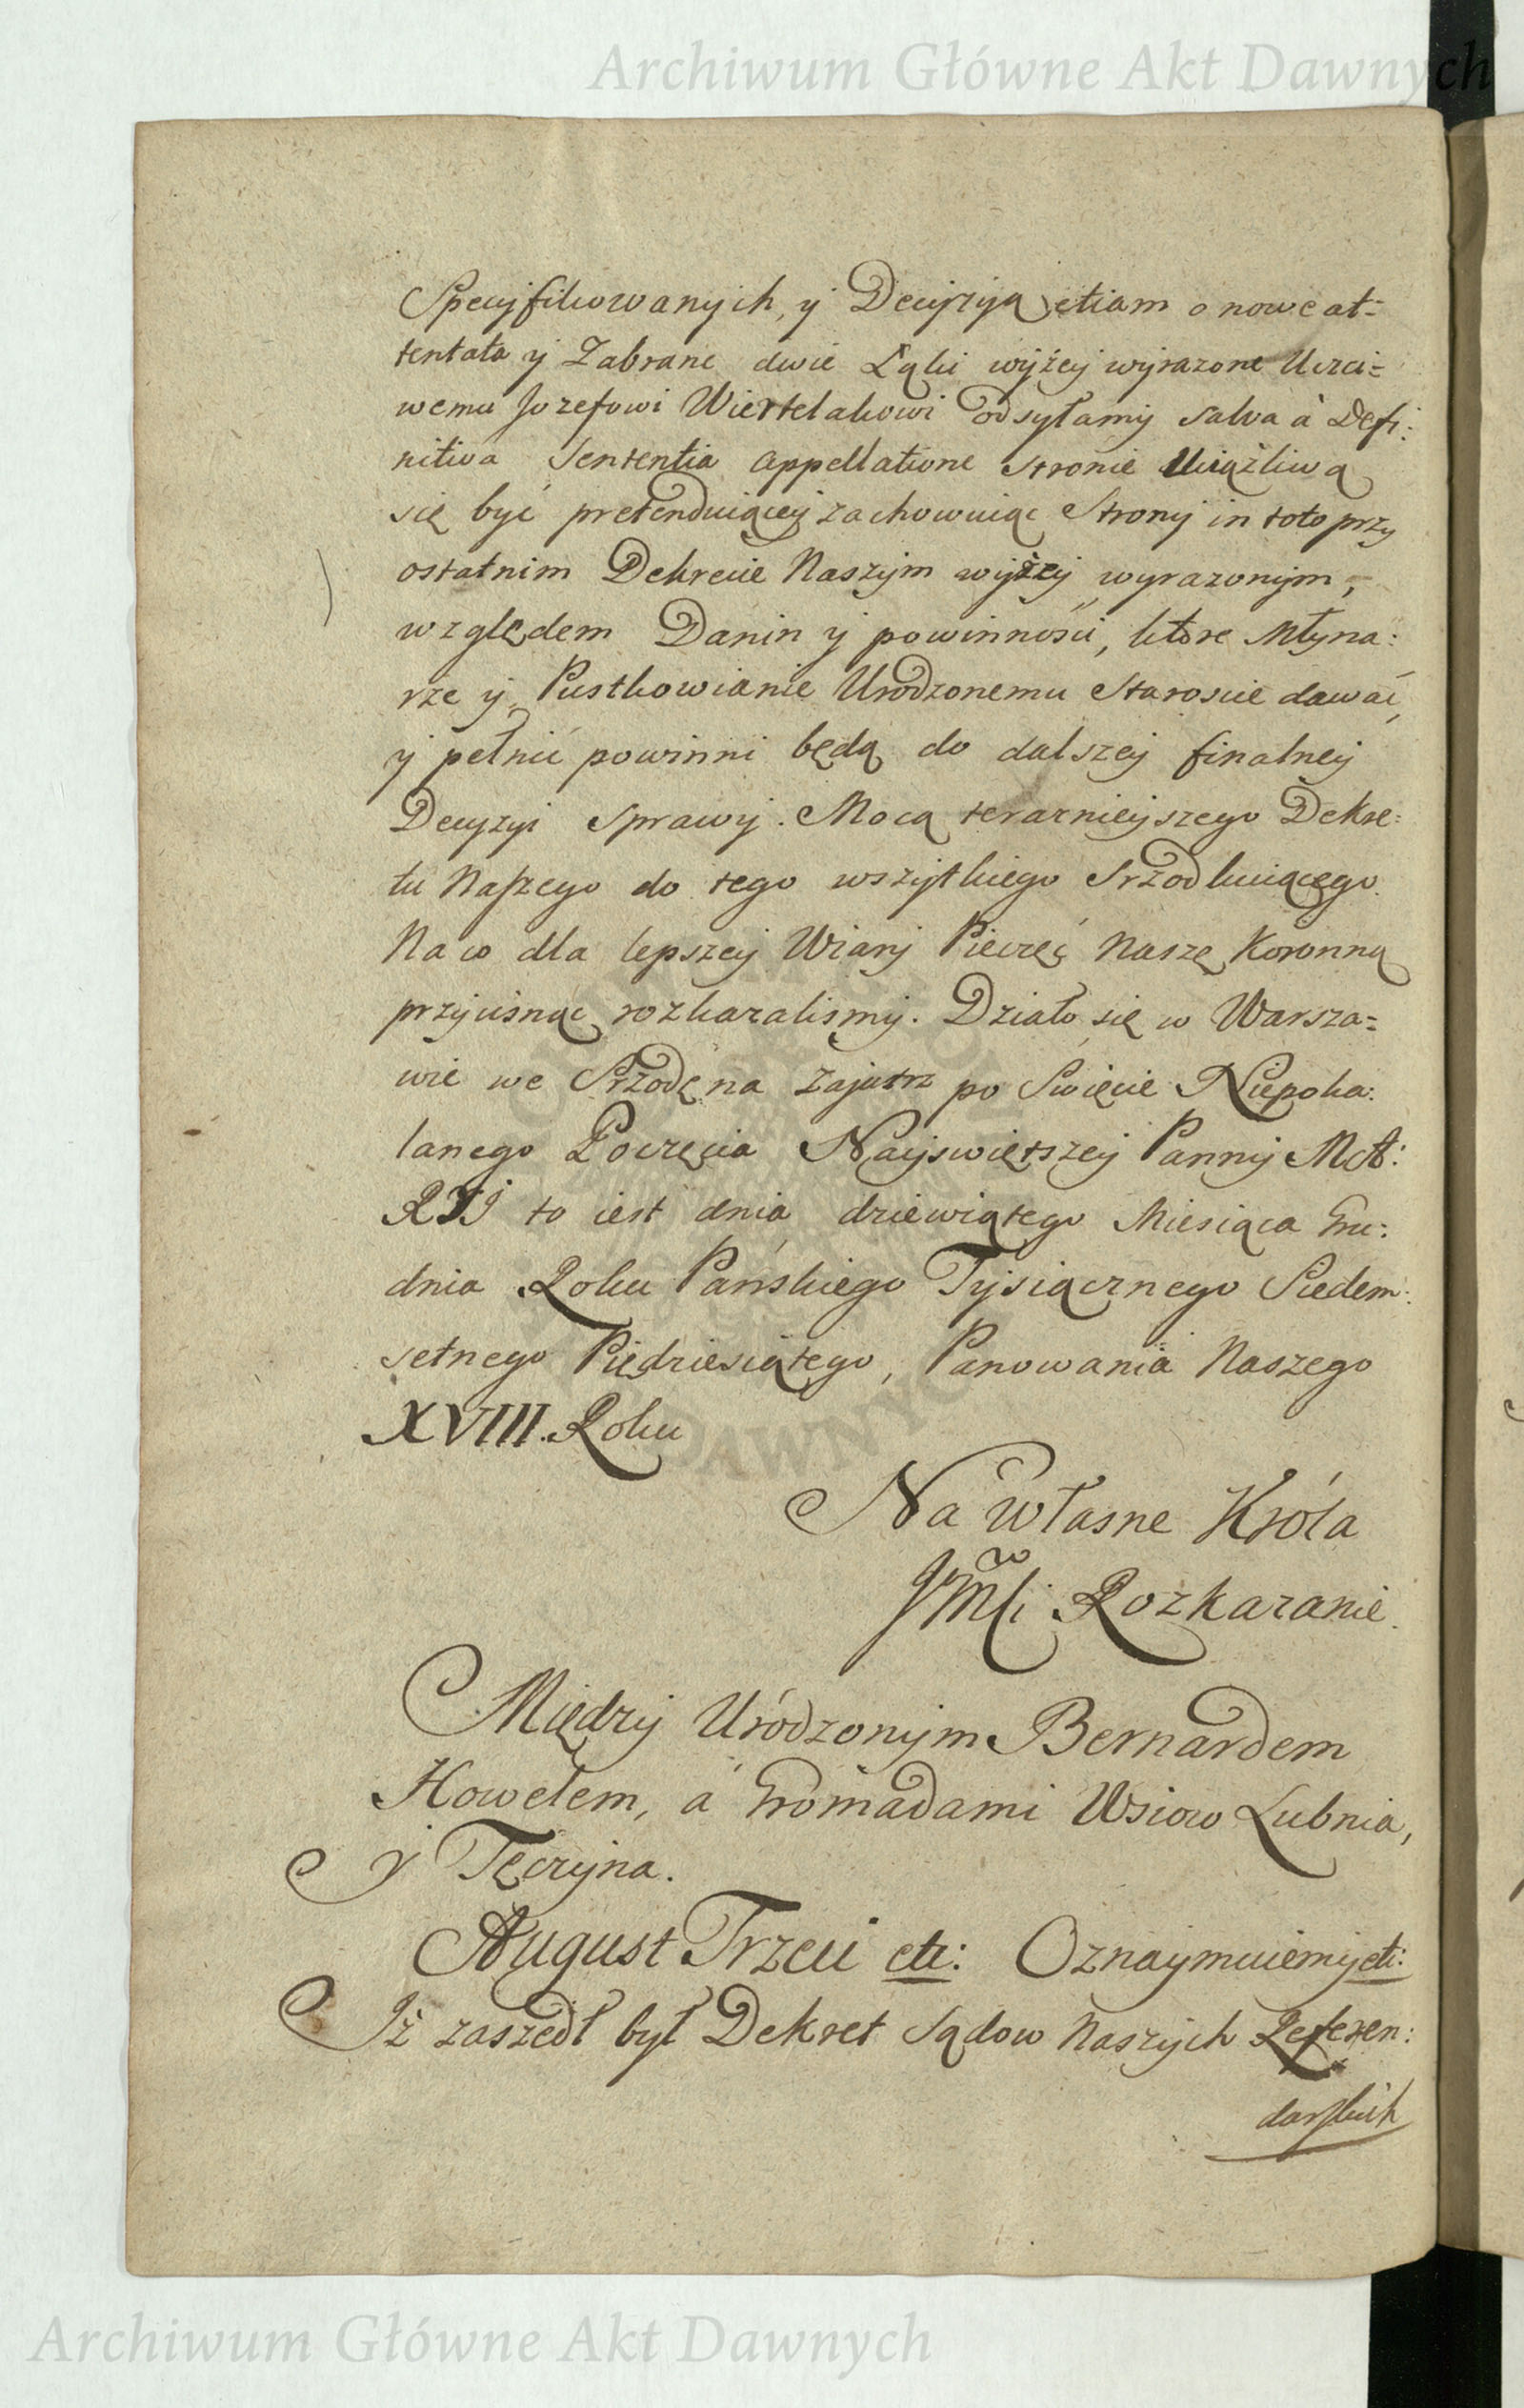 Archiwum Główne Akt Dawnych
Specyfikowanych, y Decyzyą etiam o nowe at=
tentata y Zabrane dwie Łąki wyżey wyrazone Uczci=
wemu Jozefowi Wiertelakowi odsyłamy salva à Defi:
nitiva Sententia appellatione stronie Uciążliwą
się być pretenduiącey zachowuiąc Strony in toto przy
ostatnim Dekrecie Naszym wyżey wyrazonym,
względem Danin y powinnośći, ktore Młyna:
rze y Pustkowianie Urodzonemu Starosćie dawać,
y pełnić powinni będą do dalszey finalney
Decyzyi sprawy. Mocą terazniejszego Dekre:
tu Naszego do tego wszytkiego srzodkuiącego.
Na co dla lepszey Wiary Pieczęć Naszę Koronną
przycisnąc rozkazalismy. Działo się w Warsza=
wie we Srzodę na zajutrz po Swięcie Niepoka:
lanego Poczęcia Nayswiętszey Panny MA:
RYI to iest dnia dziewiątego Miesiąca Gru:
dnia Roku Pańskiego Tysiącznego Siedem:
setnego Piędziesiątego, Panowania Naszego
XVIII. Roku
Na własne Króla
JMći Rozkazanie.
Między Uródzonym Bernardem
Howelem, á Gromadami Wsiow Lubnia,
y Tęczyna.
August Trzeci etc: Oznaymuiemy etc:
Iż zaszedł był Dekret Sądow Naszych Referen:
darskich
DAWNYCH
Archiwum Główne Akt Dawnych